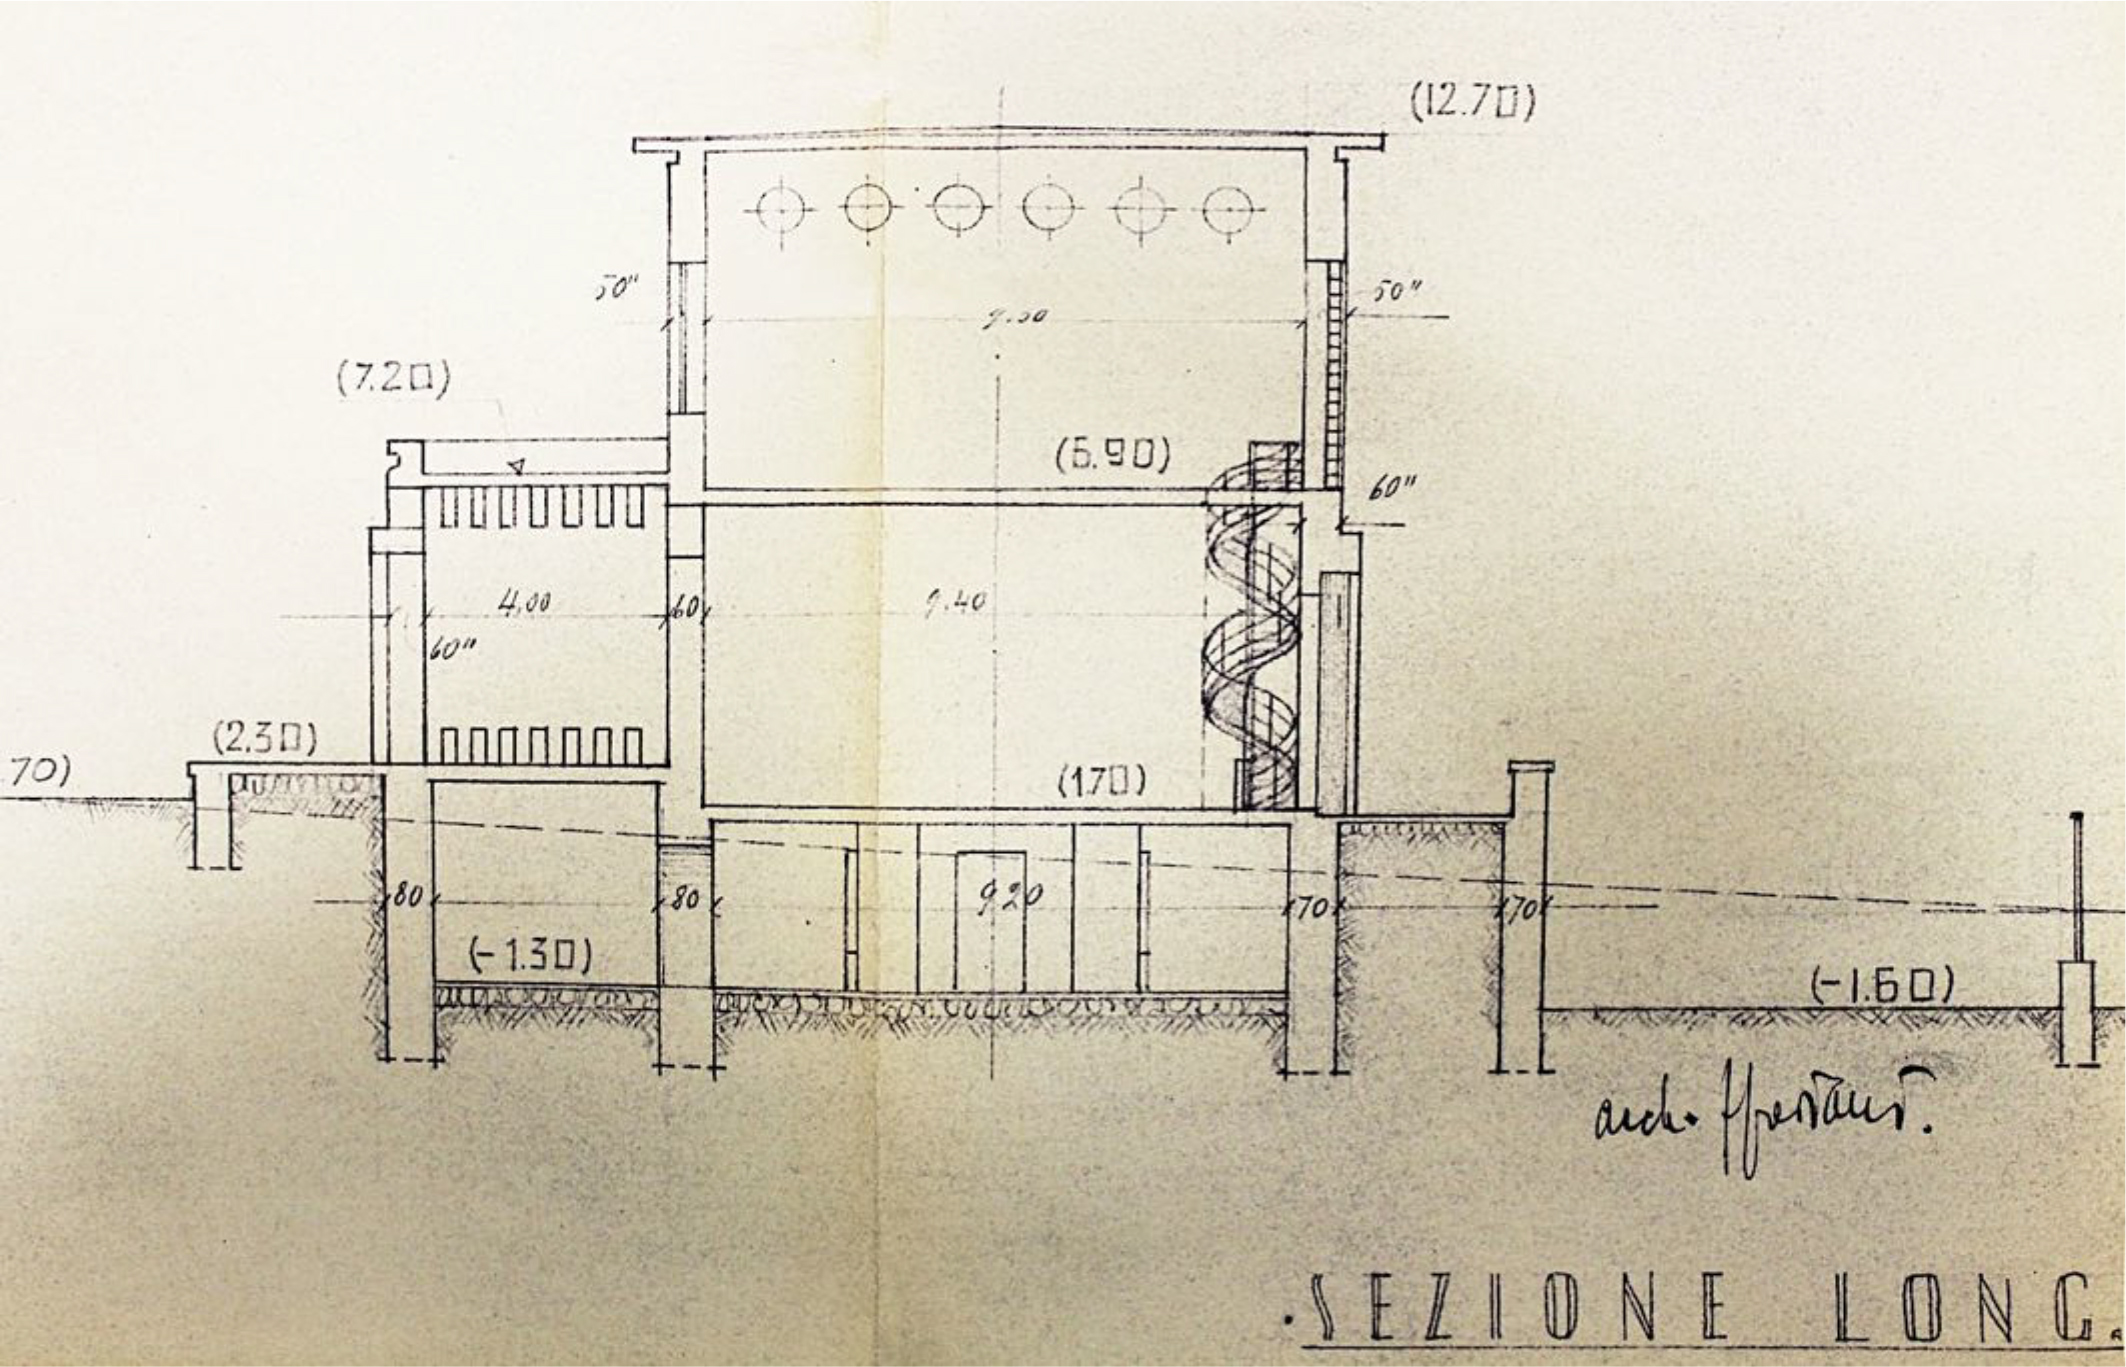 (12.70)
50"
50"
9.50
(7.20)
(6.90)
60"
4,00
60
9.40
60"
(2.30)
70)
(1.70)
80
80
9.20
70
70
(-1.30)
(-1.60)
arch.
SEZIONE LONG.